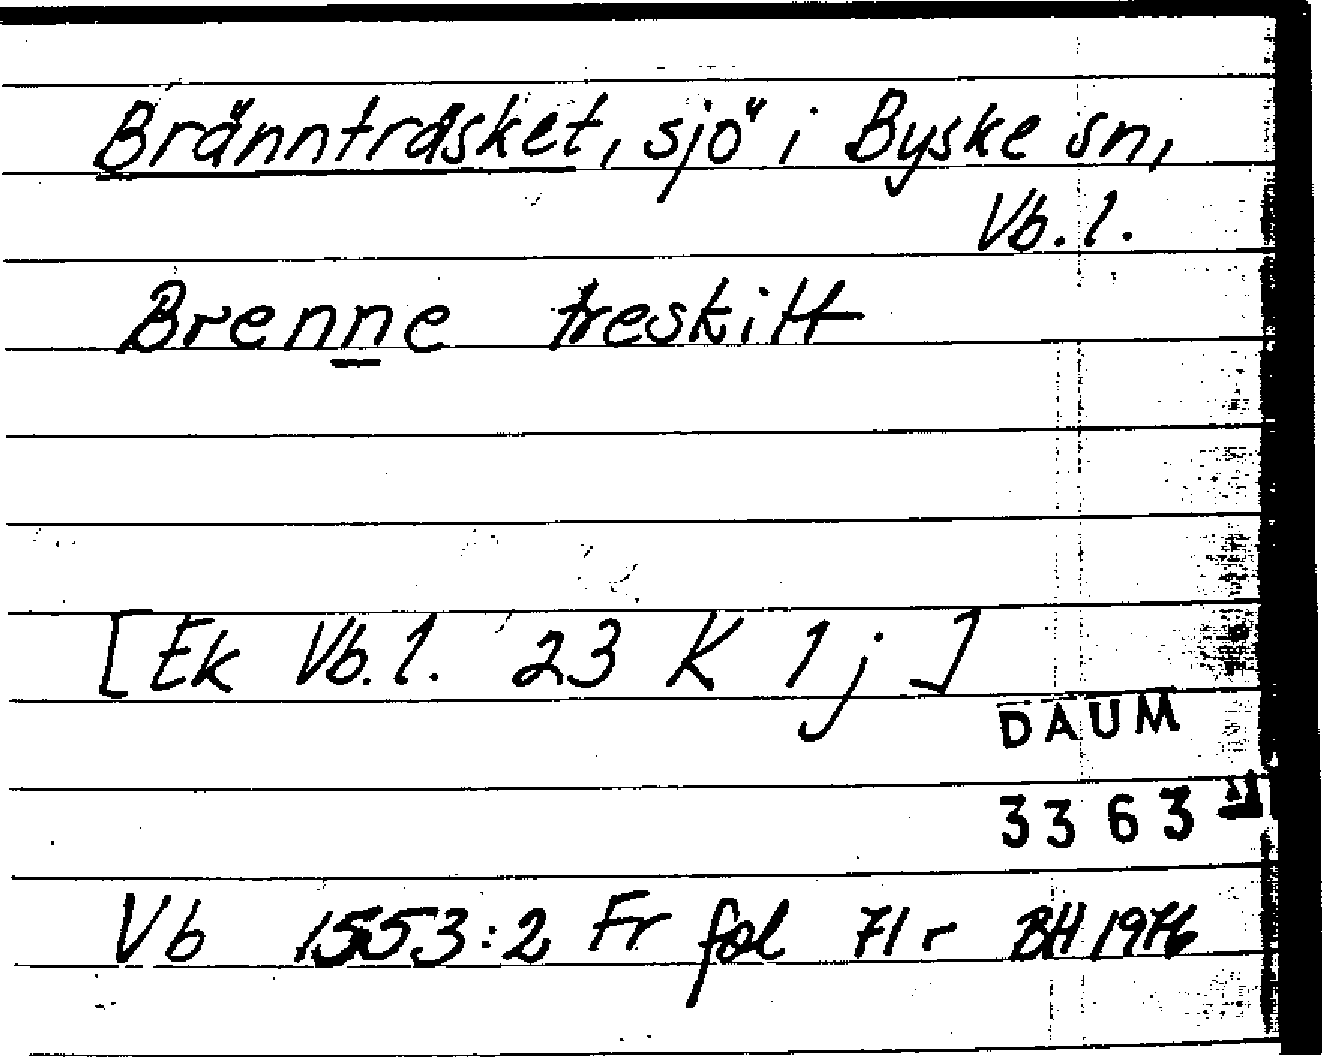 Brännträsket, sjö i Byske sn,
Vb. l.
Brenne treskitt
[Ek Vb. l. 23 K 1 j ]
DAUM
3363
Vb 1553:2 Fr fol 71 r BH 1976